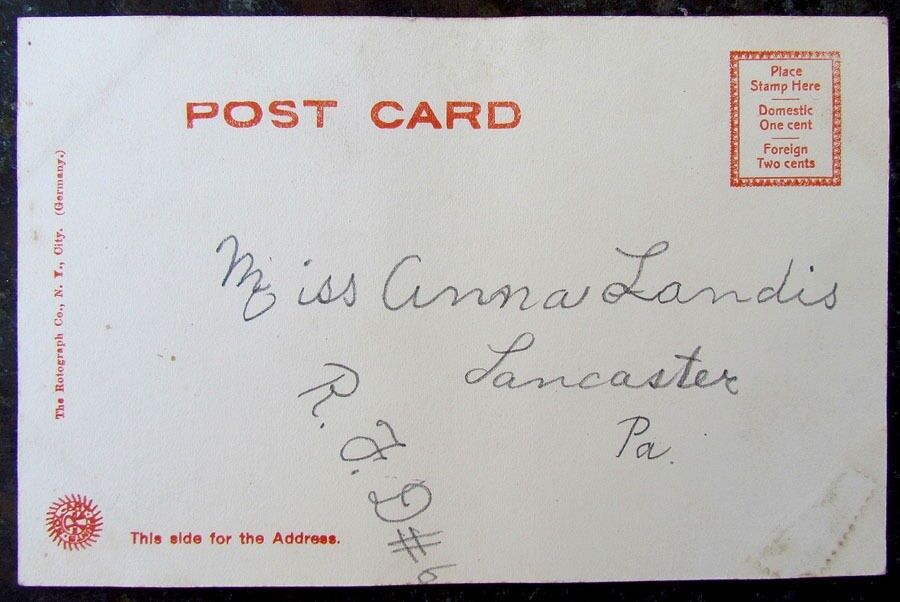 POST CARD
Place
Stamp Here
Domestic
One cent
Foreign
Two cents
The Rotograph Co., N. Y., City. (Germany.)
Miss Anna Landis
Lancaster
Pa.
R. F. D #6
This side for the Address.